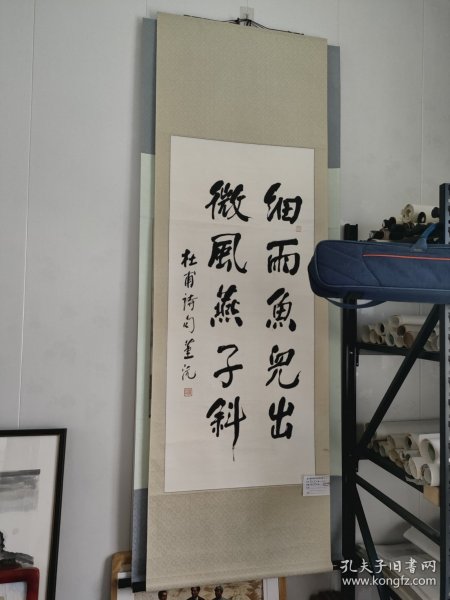 细雨魚兒出
微風燕子斜
杜甫詩句 董沅
孔夫子旧书网
www.kongfz.com